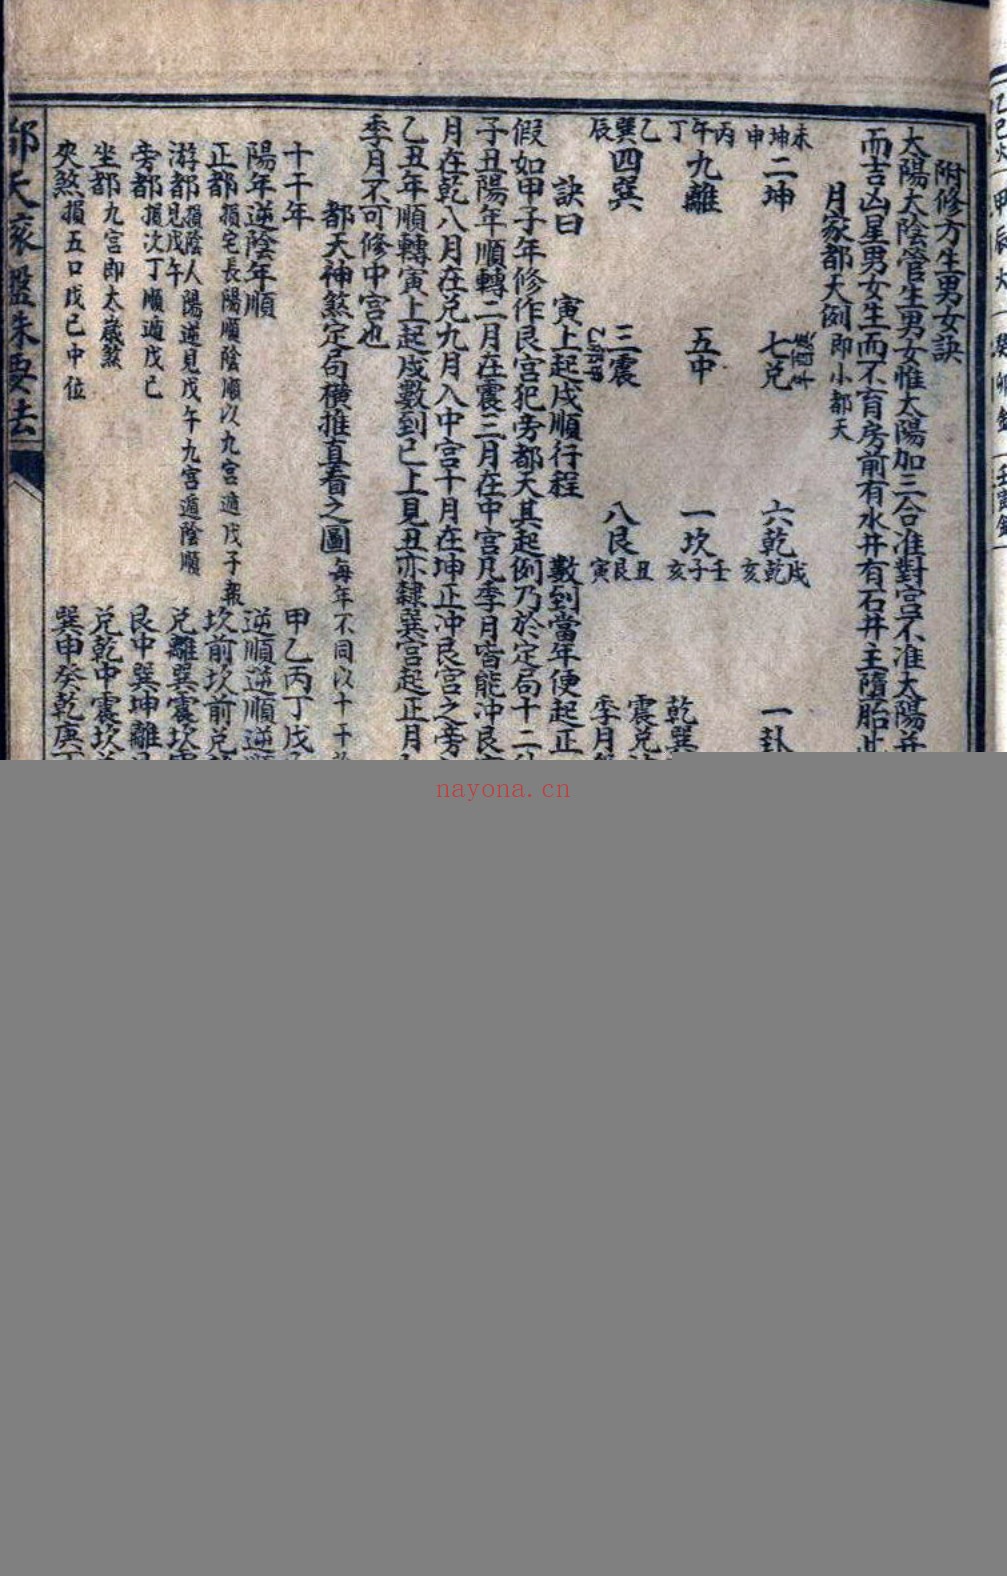 附修方生男女訣
太陽太陰管生男女惟太陽加三合准對宮不准太陽并
而吉凶星男女生而不育房前有水井有石井主隨胎此
月家都天例即小都天
未坤申 二坤 七兌 六乾 戌乾亥 一卦
丙午丁 九離 五中 一坎 壬子亥 乾巽
乙巽辰 四巽 三震 八艮 丑艮寅 震兌
季月
訣曰 寅上起戌順行程 數到當年便起正
假如甲子年修作艮宮犯旁都天其起例乃於定局十二
子丑陽年順轉二月在震三月在中宮凡季月皆能沖艮
月在乾八月在兌九月入中宮十月在坤正沖艮宮之旁
乙丑年順轉寅上起戌數到巳上見丑亦隸巽宮起正月
季月不可修中宮也
都天神煞定局橫推直看之圖每年不同以十干
十干年 甲乙丙丁戊
陽年逆陰年順 逆順逆順逆
正都損宅長陽順陰順以九宮遁戊子報 坎前坎前兌
游都損陰人陽逆見戊午九宮遁陰順見戊午 兌離巽震坎
旁都損次丁順遁戊己 艮中巽坤離
坐都九宮即太歲煞 兌乾中震坎
夾煞損五口戊己中位 巽申癸乾庚
都天家盤珠要法
nayona.cn